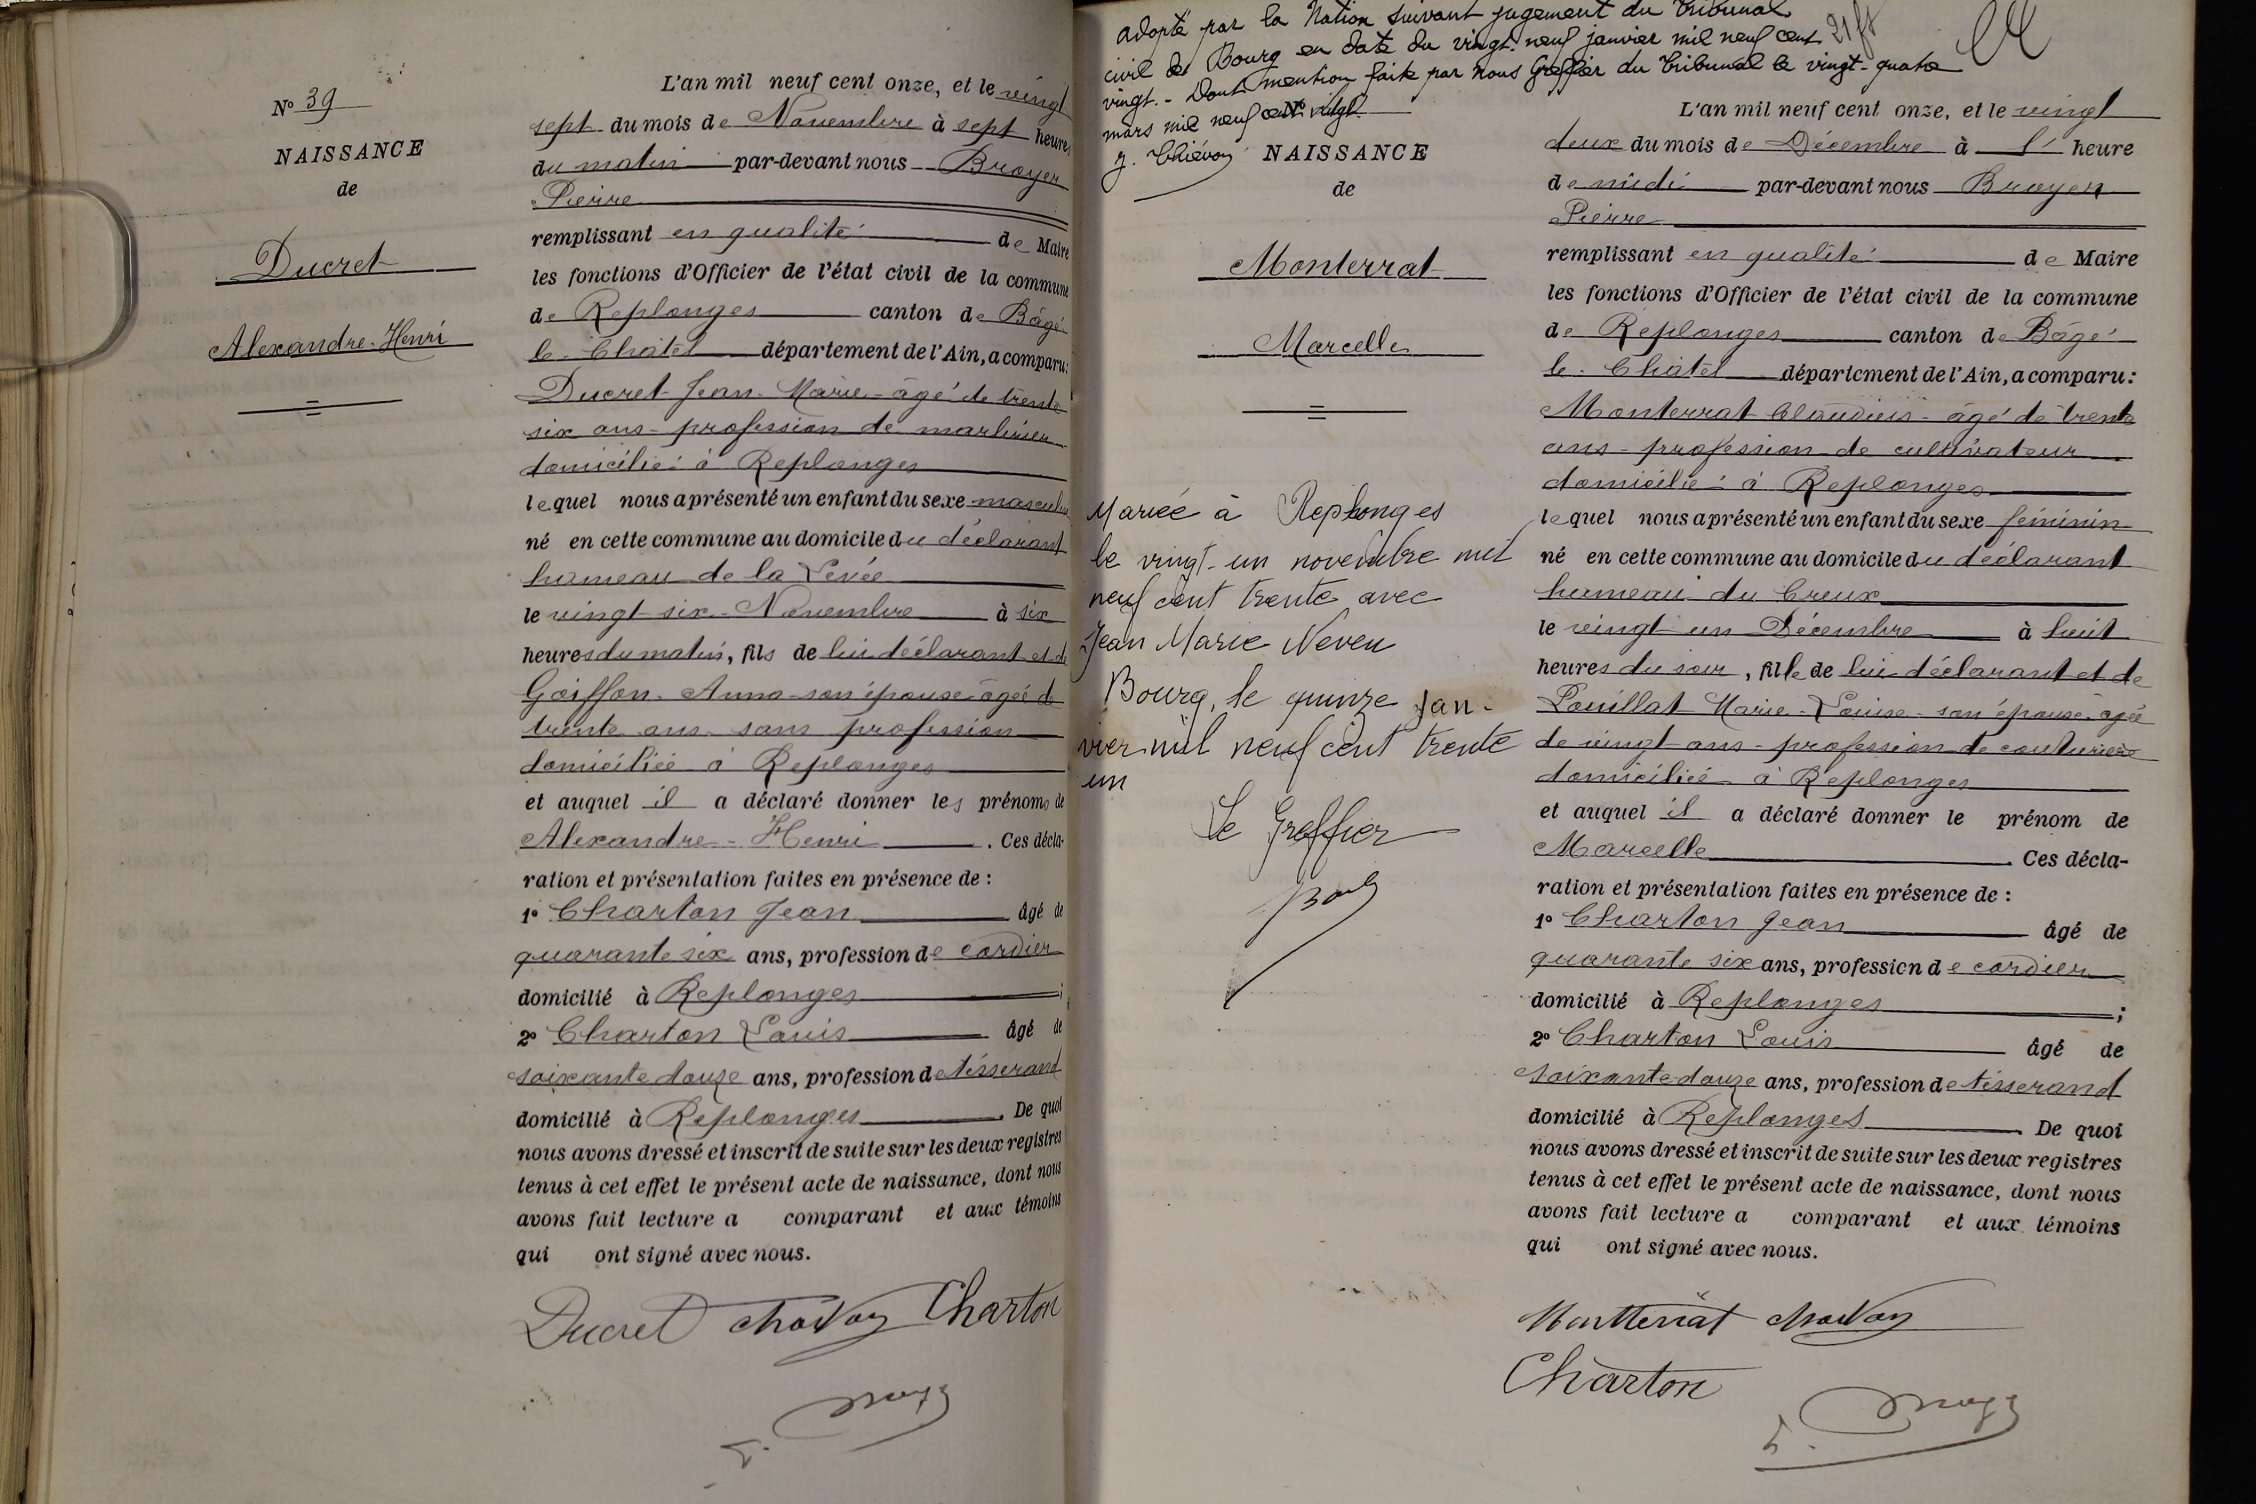 N° 39
NAISSANCE
de
Ducret
Alexandre-Henri
L'an mil neuf cent onze, et le vingt
sept du mois de Novembre à sept heures
du matin par-devant nous Broyer
Pierre
remplissant en qualité de Maire
les fonctions d'Officier de l'état civil de la commune
de Replonges canton de Bâgé
le Châtel département de l'Ain, a comparu:
Ducret Jean-Marie - âgé de trente
six ans - profession de marbrier
domicilié à Replonges
lequel nous a présenté un enfant du sexe masculin
né en cette commune au domicile du déclarant
hameau de la Levée
le vingt six Novembre à six
heures du matin, fils de lui déclarant et de
Goiffon Anna son épouse âgée de
trente ans sans profession
domiciliée à Replonges
et auquel il a déclaré donner les prénoms de
Alexandre-Henri. Ces décla-
ration et présentation faites en présence de :
1° Charton Jean âgé de
quarante six ans, profession de cordier
domicilié à Replonges;
2° Charton Louis âgé de
soixante douze ans, profession de tisserand
domicilié à Replonges. De quoi
nous avons dressé et inscrit de suite sur les deux registres
tenus à cet effet le présent acte de naissance, dont nous
avons fait lecture a comparant et aux témoins
qui ont signé avec nous.
Ducret Charton
adopté par la Nation suivant jugement du Tribunal
civil de Bourg en date du vingt-neuf janvier mil neuf cent
vingt. - Dont mention faite par nous Greffier du Tribunal le vingt-quatre
mars mil neuf cent vingt.
N°
NAISSANCE
de
Monterrat
Marcelle
Mariée à Replonges
le vingt-un novembre mil
neuf cent trente avec
Jean Marie Neveu
Bourg, le quinze jan-
vier mil neuf cent trente
un
Le Greffier
L'an mil neuf cent onze, et le vingt
deux du mois de Décembre à l' heure
de midi par-devant nous Broyer
Pierre
remplissant en qualité de Maire
les fonctions d'Officier de l'état civil de la commune
de Replonges canton de Bâgé
le Châtel département de l'Ain, a comparu:
Monterrat Claudius - âgé de trente
ans - profession de cultivateur
domicilié à Replonges
lequel nous a présenté un enfant du sexe féminin
né en cette commune au domicile du déclarant
hameau du Creux
le vingt un Décembre à huit
heures du soir, fille de lui déclarant et de
Pouillat Marie-Louise - son épouse âgée
de vingt ans - profession de couturière
domiciliée à Replonges
et auquel il a déclaré donner le prénom de
Marcelle. Ces décla-
ration et présentation faites en présence de :
1° Charton Jean âgé de
quarante six ans, profession de cordier
domicilié à Replonges;
2° Charton Louis âgé de
soixante-douze ans, profession de tisserand
domicilié à Replonges. De quoi
nous avons dressé et inscrit de suite sur les deux registres
tenus à cet effet le présent acte de naissance, dont nous
avons fait lecture a comparant et aux témoins
qui ont signé avec nous.
Montterrat
Charton